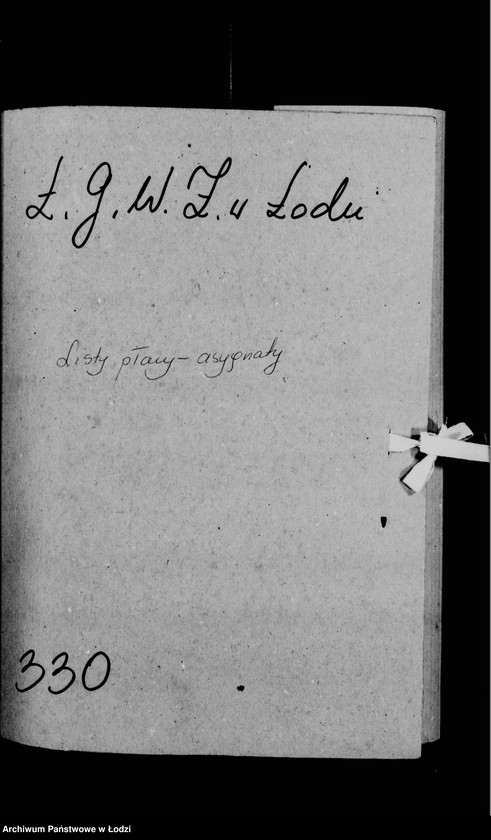 Ł. G. W. Ż. w Łodzi
Listy płacy - asygnaty
330
Archiwum Państwowe w Łodzi